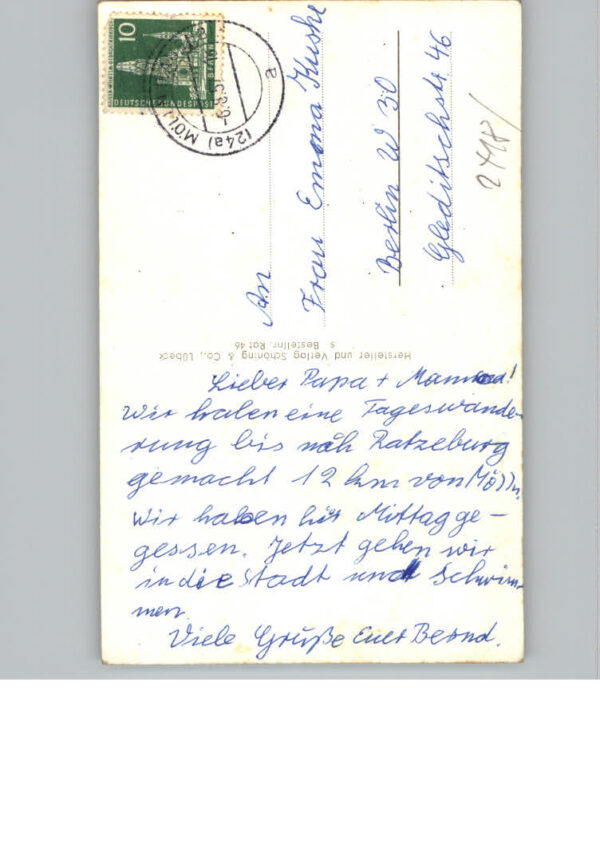 10
DEUTSCHE BUNDESPOST
BERLIN
(24a) MÖLLN
a
An
Frau Emma Kuske
Berlin W 30
Gleditschstr 46
Hersteller und Verlag Schöning & Co., Lübeck
s Bestellnr. Rat 46
Lieber Papa + Mama!
Wir haben eine Tageswande-
rung bis nach Ratzeburg
gemacht 12 km von Mölln.
Wir haben hir Mittag ge-
gessen. Jetzt gehen wir
in die Stadt und Schwim-
men
Viele Grüße Euer Bernd.